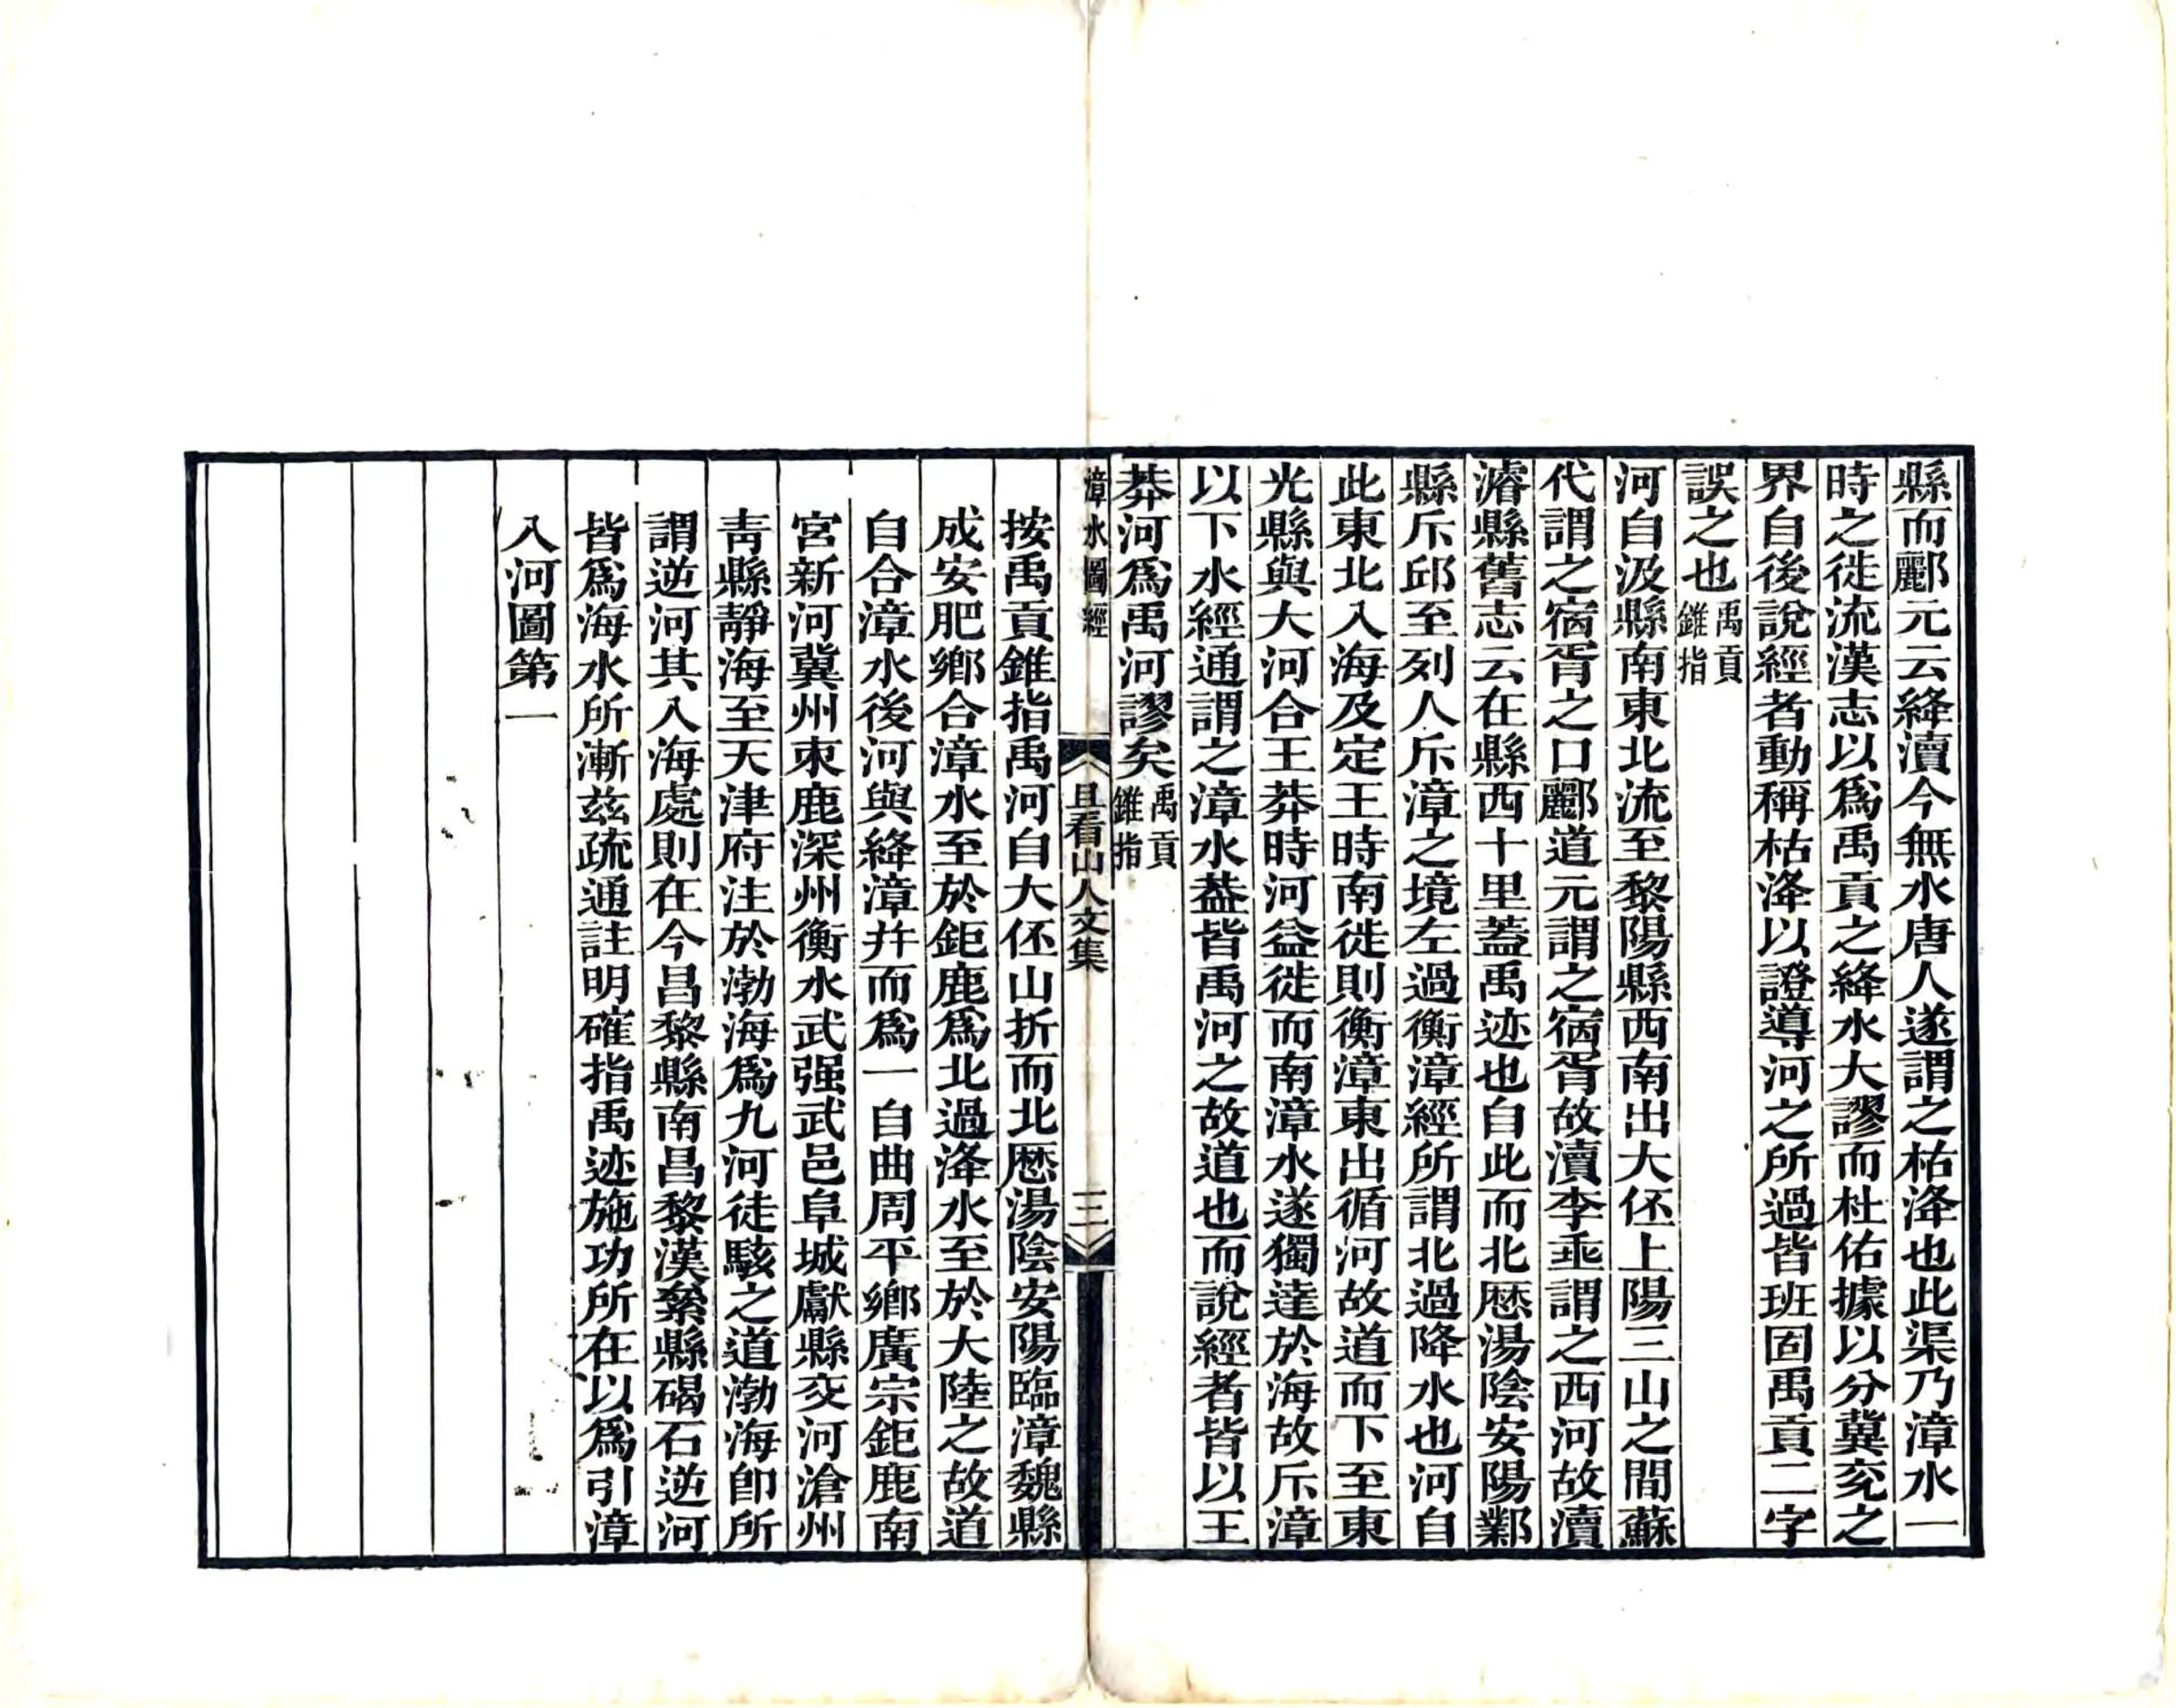 縣而酈元云絳瀆今無水唐人遂謂之枯洚也此渠乃漳水一
時之徙流漢志以爲禹貢之絳水大謬而杜佑據以分冀兖之
界自後說經者動稱枯洚以證導河之所過皆班固禹貢二字
誤之也禹貢錐指
河自汲縣南東北流至黎陽縣西南出大伾上陽三山之間蘇
代謂之宿胥之口酈道元謂之宿胥故瀆李垂謂之西河故瀆
濬縣舊志云在縣西十里蓋禹迹也自此而北歷湯陰安陽鄴
縣斥邱至列人斥漳之境左過衡漳經所謂北過降水也河自
此東北入海及定王時南徙則衡漳東出循河故道而下至東
光縣與大河合王莽時河益徙而南漳水遂獨達於海故斥漳
以下水經通謂之漳水葢皆禹河之故道也而說經者皆以王
莽河爲禹河謬矣禹貢錐指
漳水圖經
且看山人文集
三
按禹貢錐指禹河自大伾山折而北歷湯陰安陽臨漳魏縣
成安肥鄉合漳水至於鉅鹿爲北過洚水至於大陸之故道
自合漳水後河與絳漳幷而爲一自曲周平鄉廣宗鉅鹿南
宮新河冀州束鹿深州衡水武强武邑阜城獻縣交河滄州
靑縣靜海至天津府注於渤海爲九河徒駭之道渤海卽所
謂逆河其入海處則在今昌黎縣南昌黎漢絫縣碣石逆河
皆爲海水所漸茲疏通註明確指禹迹施功所在以爲引漳
入河圖第一